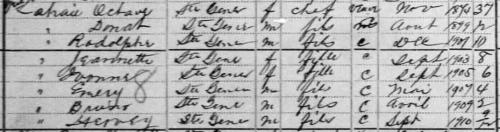 Octave Ste Gene f chef veuve Nov 1873 37
" Donat Ste Gene m fils Aout 1899
" Rodolphe Ste Gene m fils c Dec 10
" Jeannette Ste Gene f fille c Sept 1903 8
" Yvonne Ste Gene f fille c Sept 1905 6
" Emery Ste Gene m fils c Mai 1907 4
" Bruno Ste Gene m fils c Avril 1909 2
" Ste Gene m fils c Sept 1910